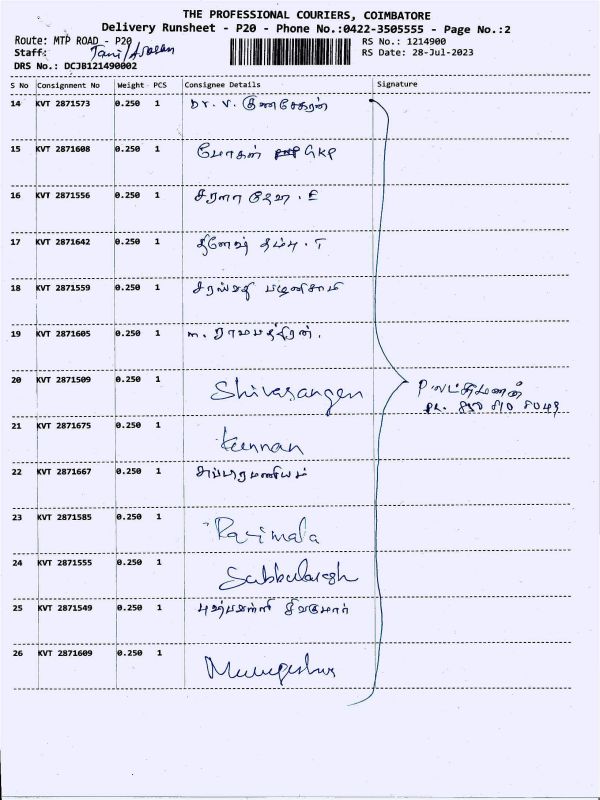 THE PROFESSIONAL COURIERS, COIMBATORE
Delivery Runsheet - P20 - Phone No.:0422-3505555 - Page No.:2
Route: MTP ROAD - P20
RS No.: 1214900
Staff:
RS Date: 28-Jul-2023
DRS No.: DCJB121490002
S No Consignment No Weight PCS Consignee Details Signature
14 KVT 2871573 0.250 1 Dr. V. குணசேகரன்
15 KVT 2871608 0.250 1 மோகன் GKP
16 KVT 2871556 0.250 1 சரளா தேவி . E
17 KVT 2871642 0.250 1 தினேஷ் தம்பு . T
18 KVT 2871559 0.250 1 சரஸ்வதி பழனிசாமி
19 KVT 2871605 0.250 1 m. ராமபத்திரன்.
20 KVT 2871509 0.250 1 Shivasangen
P லட்சுமணன்
21 KVT 2871675 0.250 1 Kennan
22 KVT 2871667 0.250 1 சுப்பிரமணியம்
23 KVT 2871585 0.250 1
24 KVT 2871555 0.250 1
25 KVT 2871549 0.250 1 புஷ்பவள்ளி சிவகுமார்
26 KVT 2871609 0.250 1